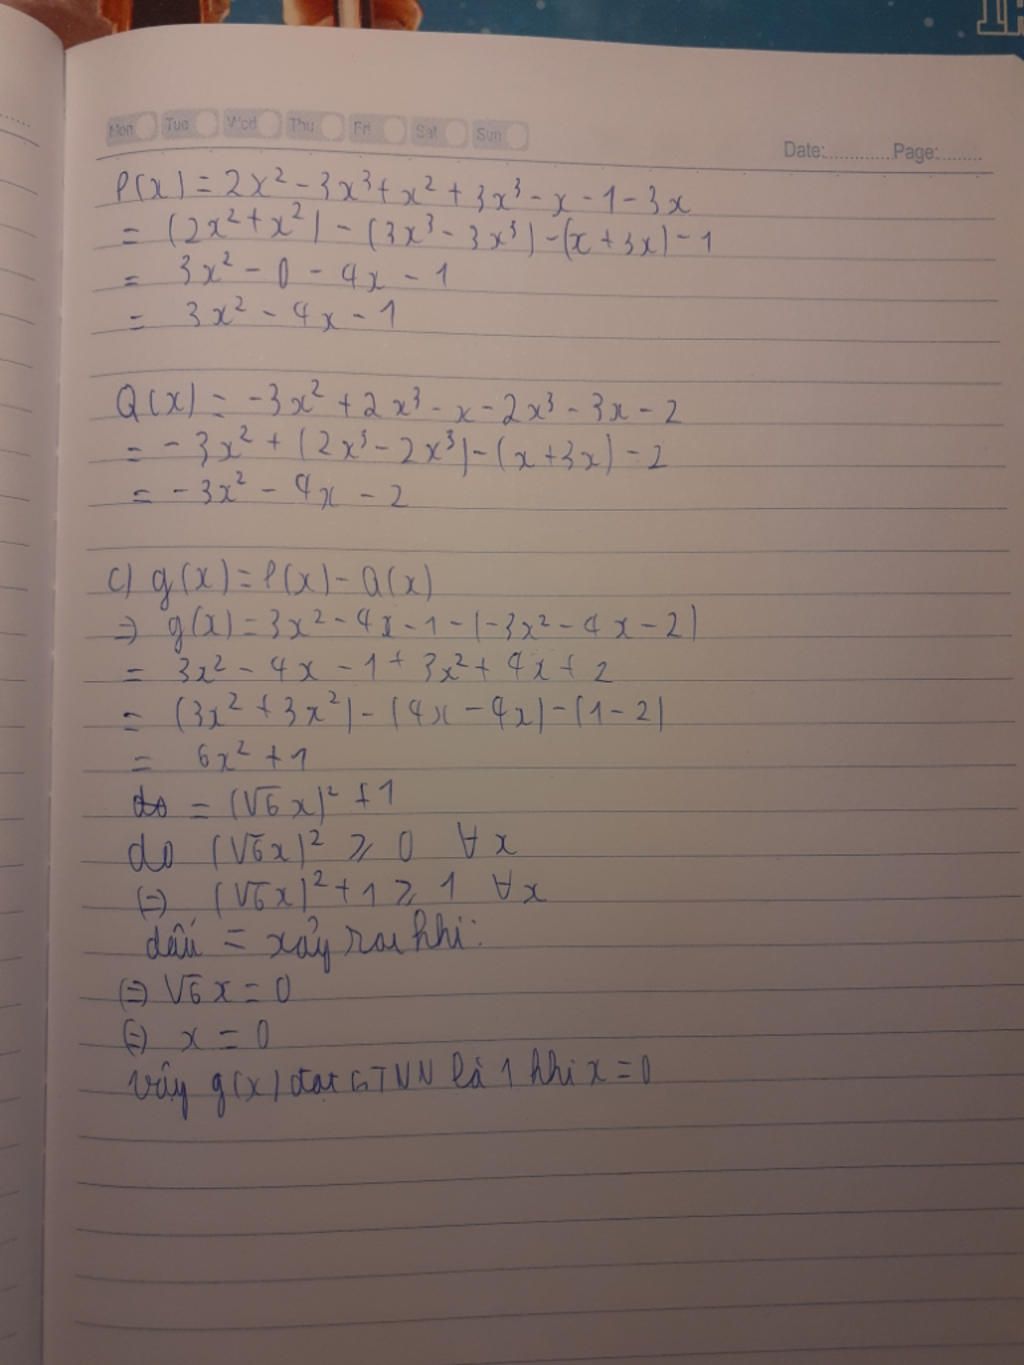 Mon Tue Wed Thu Fri Sat Sun
Date:............Page:........
P(x) = 2x² - 3x³ + x² + 3x³ - x - 1 - 3x
= (2x² + x²) - (3x³ - 3x³) - (x + 3x) - 1
= 3x² - 0 - 4x - 1
= 3x² - 4x - 1
Q(x) = -3x² + 2x³ - x - 2x³ - 3x - 2
= -3x² + (2x³ - 2x³) - (x + 3x) - 2
= -3x² - 4x - 2
c) g(x) = P(x) - Q(x)
⇒ g(x) = 3x² - 4x - 1 - (-3x² - 4x - 2)
= 3x² - 4x - 1 + 3x² + 4x + 2
= (3x² + 3x²) - (4x - 4x) - (1 - 2)
= 6x² + 1
= (√6x)² + 1
do (√6x)² ≥ 0 ∀x
(=) (√6x)² + 1 ≥ 1 ∀x
dấu = xảy ra khi:
(=) √6x = 0
(=) x = 0
vậy g(x) đạt GTNN là 1 khi x = 0